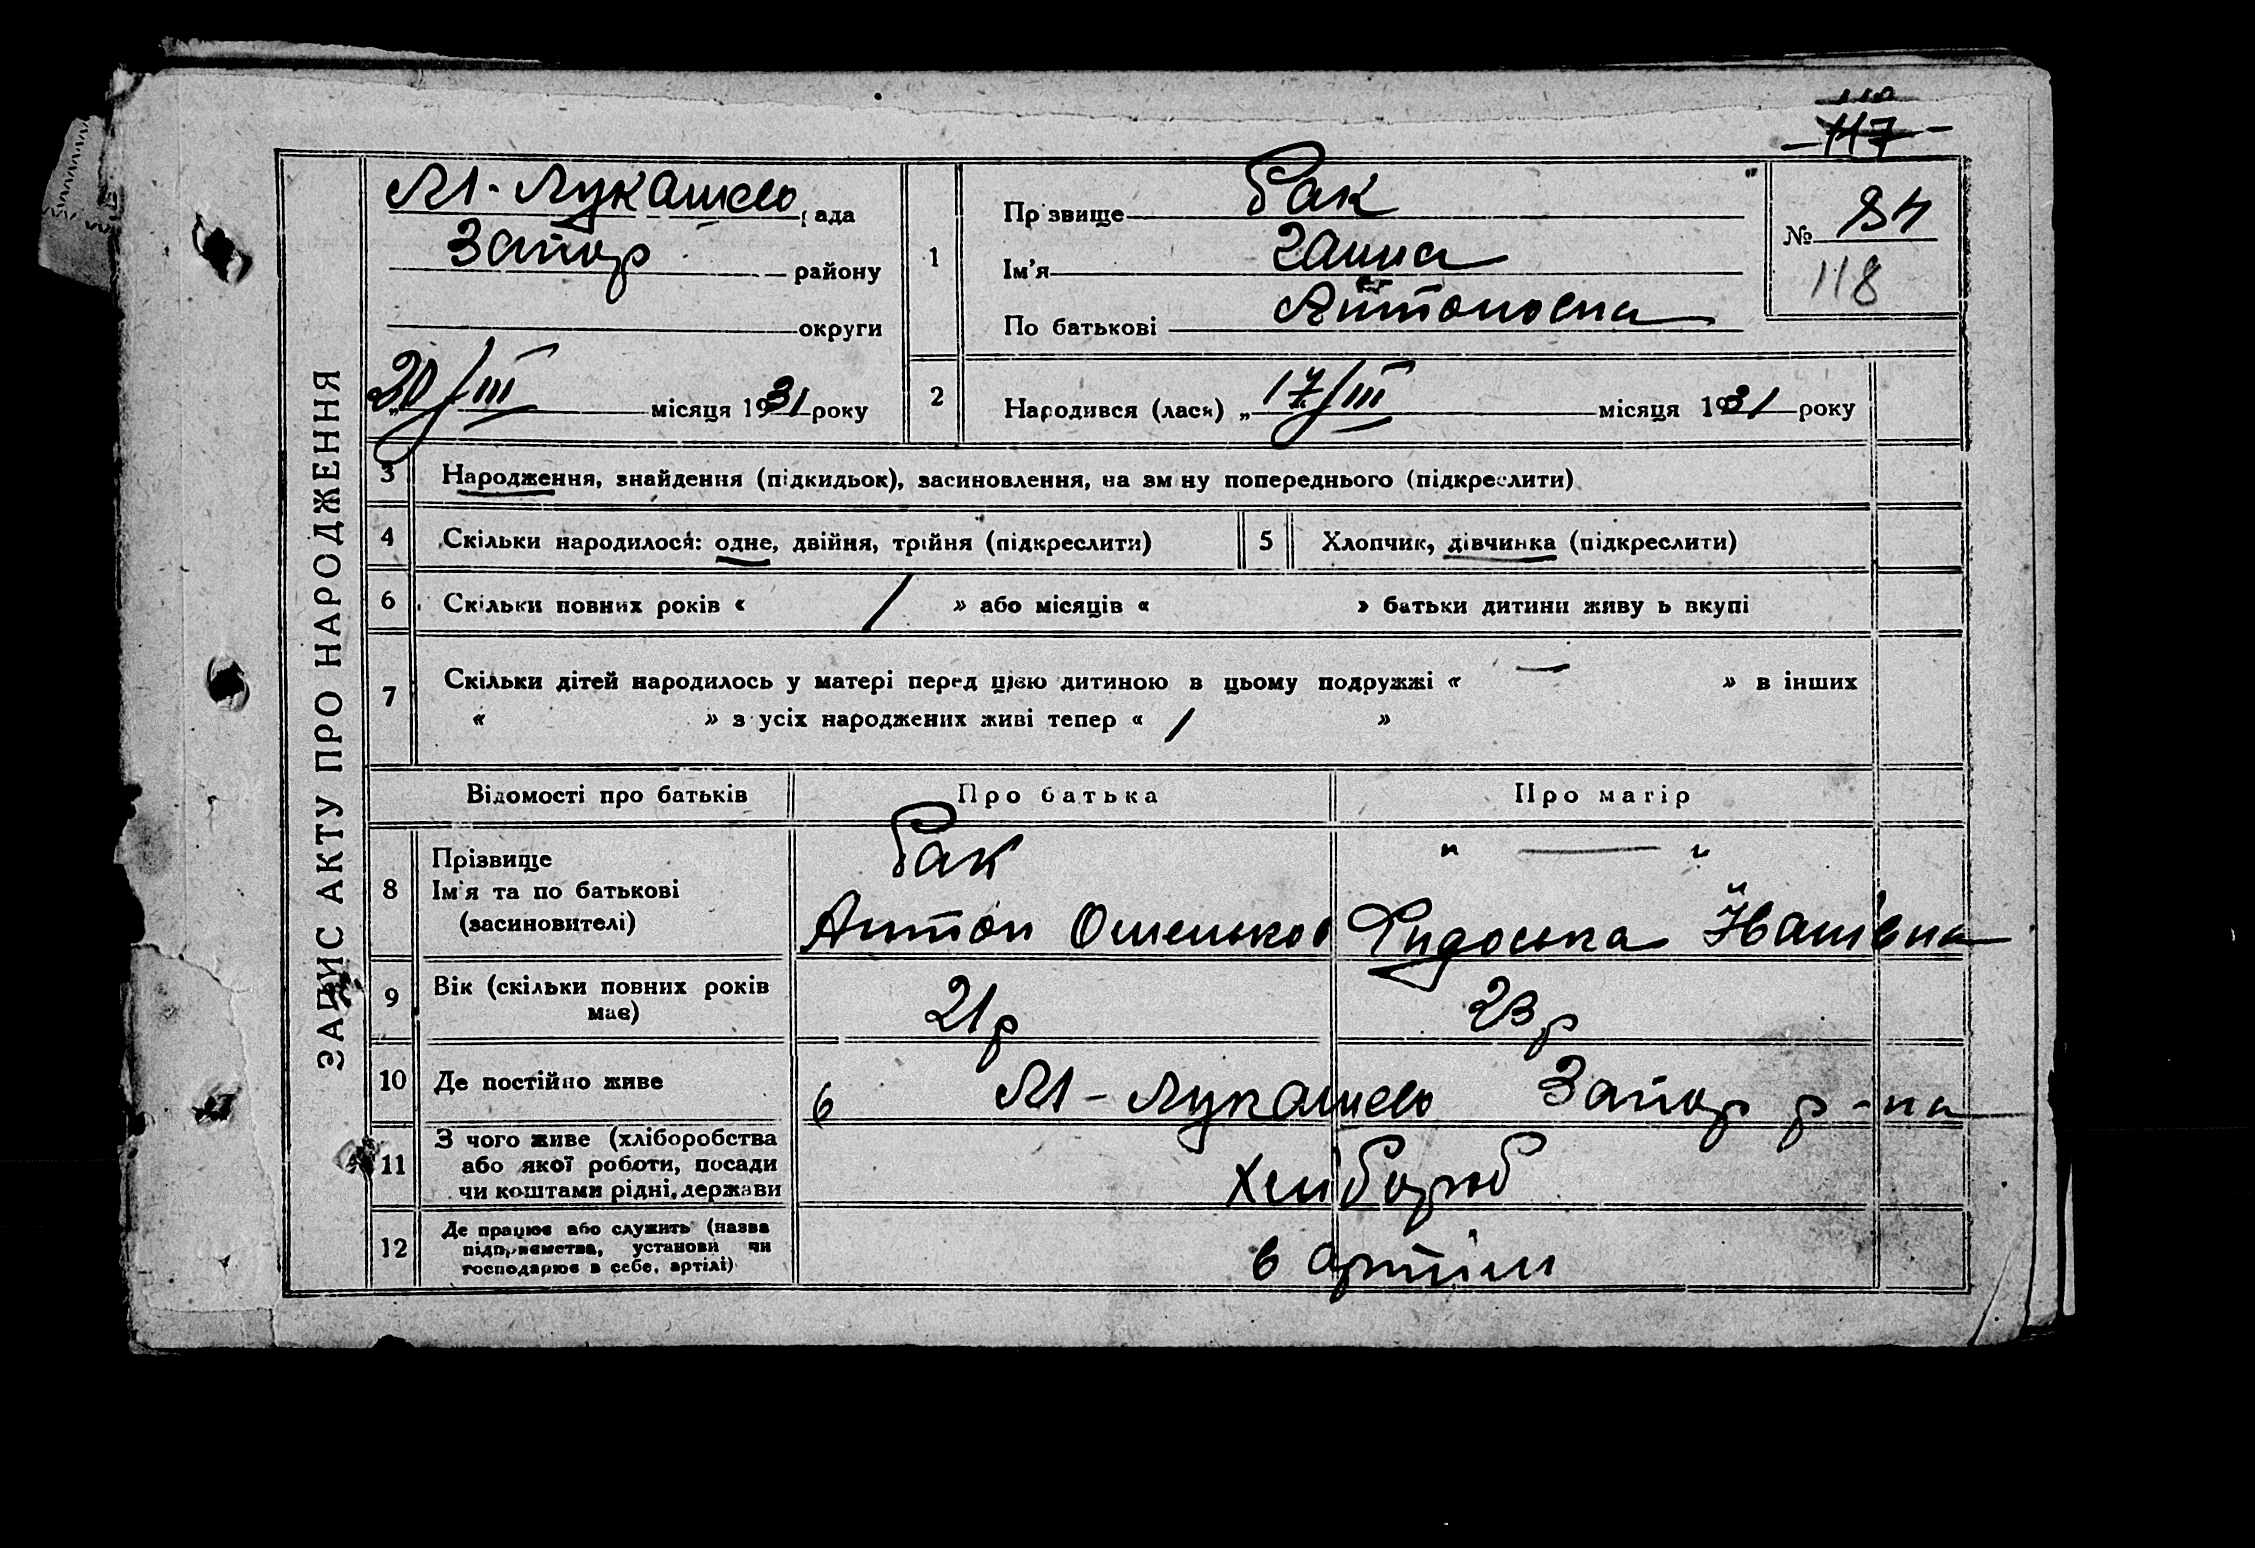 117
М-Лукашево рада
Запор району
округи
20/III місяця 1931 року
1
Прізвище Бак
Ім'я Ганна
По батькові Антоновна
№ 84
118
2
Народився (лася) „17/III місяця 1931 року
ЗАПИС АКТУ ПРО НАРОДЖЕННЯ
3 Народження, знайдення (підкидьок), засиновлення, на зміну попереднього (підкреслити)
4 Скільки народилося: одне, двійня, трійня (підкреслити) 5 Хлопчик, дівчинка (підкреслити)
6 Скільки повних років « / » або місяців « » батьки дитини живуть вкупі
7 Скільки дітей народилось у матері перед цією дитиною в цьому подружжі « — » в інших
« » з усіх народжених живі тепер « / »
Відомості про батьків Про батька Про матір
8 Прізвище
Ім'я та по батькові
(засиновителі)
Бак
Антон
" — "
Іванівна
9 Вік (скільки повних років
має)
21 р 23 р
10 Де постійно живе в М-Лукашево Запор р-на
11 З чого живе (хліборобства
або якої роботи, посади
чи коштами рідні, держави
Хлібороб
12 Де працює або служить (назва
підприємства, установи чи
господарює в себе, артілі)
в артіли